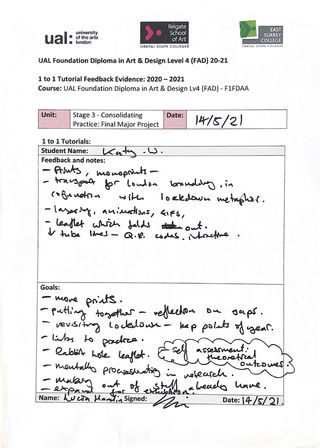 ual: university of the arts london
Reigate School of Art
ORBITAL SOUTH COLLEGES
EAST SURREY COLLEGE
ORBITAL SOUTH COLLEGES
UAL Foundation Diploma in Art & Design Level 4 (FAD) 20-21
1 to 1 Tutorial Feedback Evidence: 2020 – 2021
Course: UAL Foundation Diploma in Art & Design Lv4 (FAD) - F1FDAA
Unit: Stage 3 - Consolidating Practice: Final Major Project Date: 14/5/21
1 to 1 Tutorials:
Student Name: Katy .W.
Feedback and notes:
- Prints, monoprints -
- transport for london branding, in
conjunction with lockdown metaphor.
- layering, animations, GIFs,
- leaflet which folds out.
↓ tube lines - Q.R codes. interactive.
Goals:
- more prints.
- putting together - reflection on gaps.
- revisiting lockdown - key points of year.
- links to practice.
- Rabbit hole leaflet.
self assessment: theoretical outcomes.
- mentally processing in research.
- making out of stuff already have.
- expand for exhibition.
Name: Lucia Signed: Date: 14/5/21.